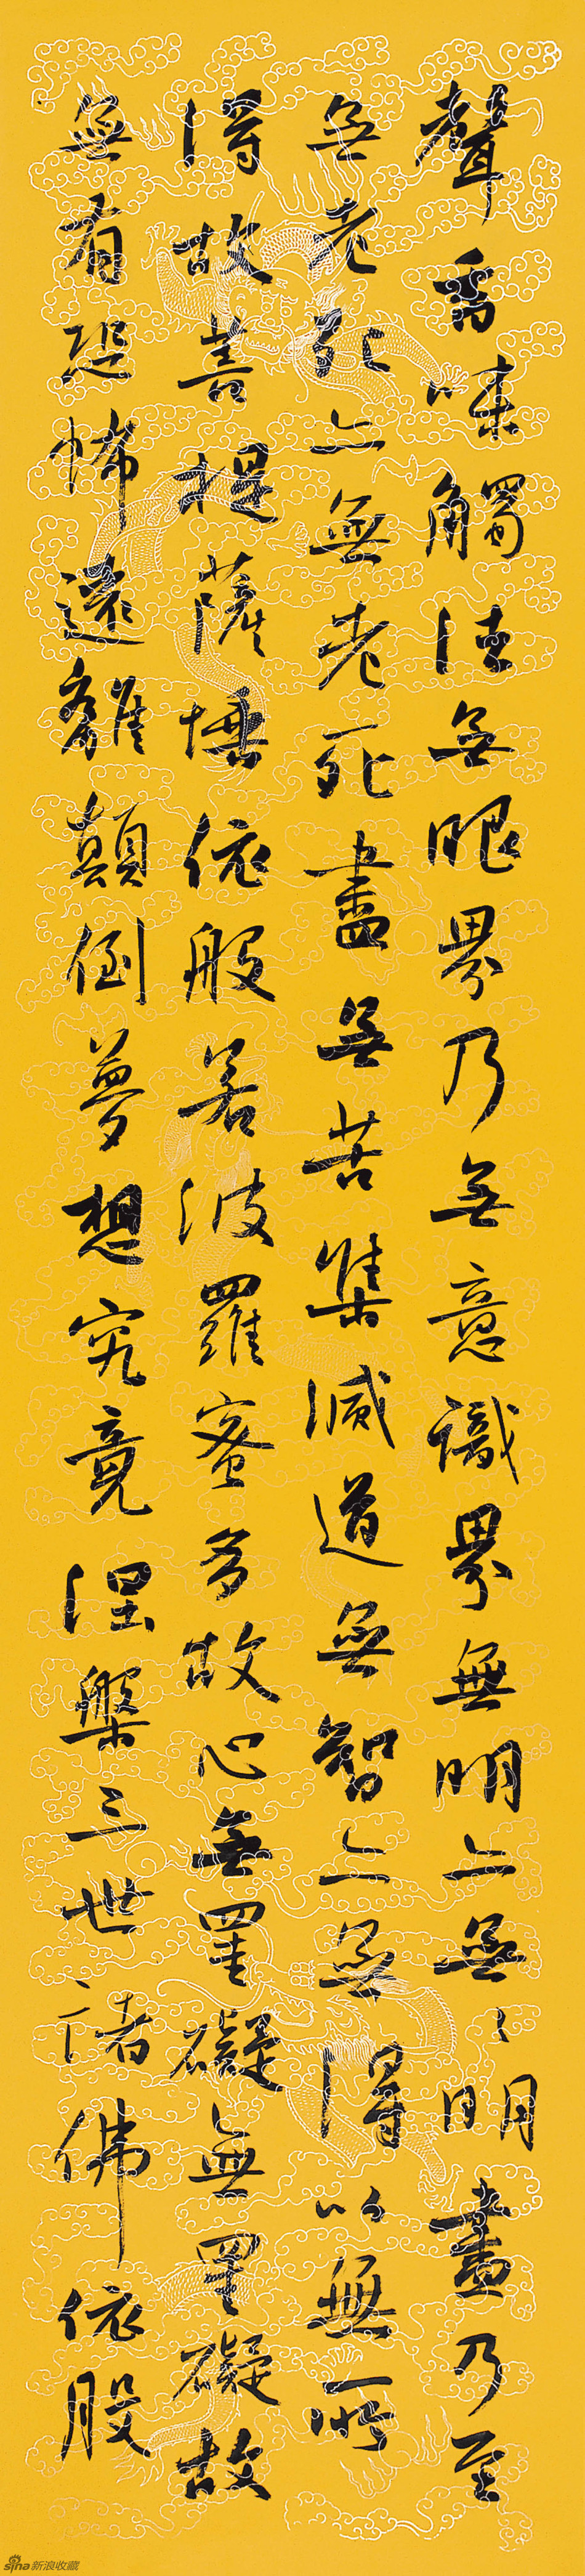 聲香味觸法無眼界乃無意識界無明亦無〻明盡乃至
無老死亦無老死盡無苦集滅道無智亦無得以無所
得故菩提薩埵依般若波羅蜜多故心無罣礙無罣礙故
無有恐怖遠離顛倒夢想究竟涅槃三世諸佛依般
sina新浪收藏